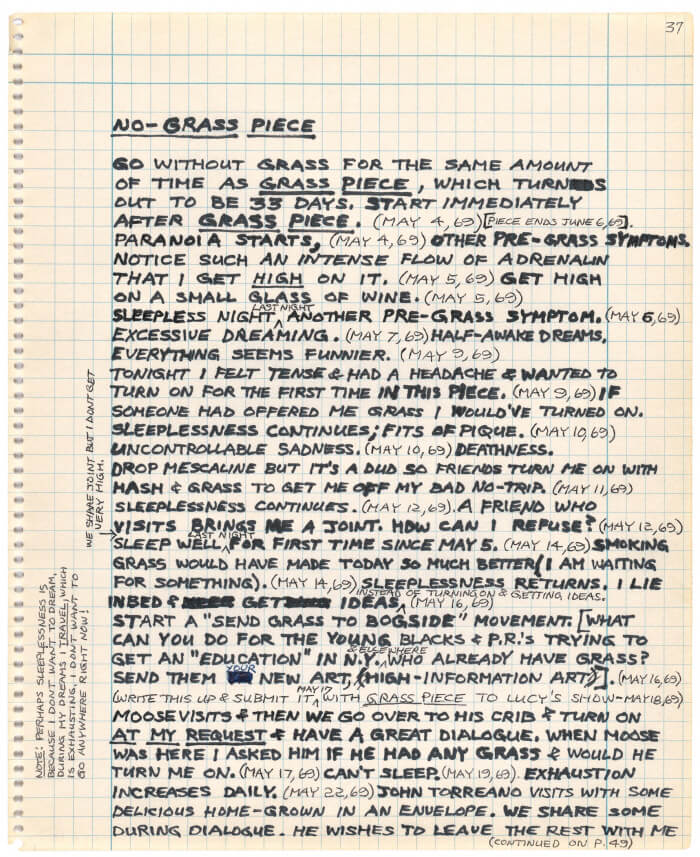 37
NO-GRASS PIECE
GO WITHOUT GRASS FOR THE SAME AMOUNT
OF TIME AS GRASS PIECE, WHICH TURNS
OUT TO BE 33 DAYS. START IMMEDIATELY
AFTER GRASS PIECE. (MAY 4, 69) [PIECE ENDS JUNE 6, 69].
PARANOIA STARTS, (MAY 4, 69) OTHER PRE-GRASS SYMPTOMS.
NOTICE SUCH AN INTENSE FLOW OF ADRENALIN
THAT I GET HIGH ON IT. (MAY 5, 69) GET HIGH
ON A SMALL GLASS OF WINE. (MAY 5, 69)
SLEEPLESS NIGHT LAST NIGHT, ANOTHER PRE-GRASS SYMPTOM. (MAY 6, 69)
EXCESSIVE DREAMING. (MAY 7, 69) HALF-AWAKE DREAMS.
EVERYTHING SEEMS FUNNIER. (MAY 9, 69)
TONIGHT I FELT TENSE & HAD A HEADACHE & WANTED TO
TURN ON FOR THE FIRST TIME IN THIS PIECE. (MAY 9, 69) IF
SOMEONE HAD OFFERED ME GRASS I WOULD'VE TURNED ON.
SLEEPLESSNESS CONTINUES; FITS OF PIQUE. (MAY 10, 69)
UNCONTROLLABLE SADNESS. (MAY 10, 69) DEATHNESS.
DROP MESCALINE BUT IT'S A DUD SO FRIENDS TURN ME ON WITH
HASH & GRASS TO GET ME OFF MY BAD NO-TRIP. (MAY 11, 69)
SLEEPLESSNESS CONTINUES. (MAY 12, 69) A FRIEND WHO
VISITS BRINGS ME A JOINT. HOW CAN I REFUSE? (MAY 12, 69)
WE SHARE JOINT BUT I DONT GET
VERY HIGH.
SLEEP WELL LAST NIGHT FOR FIRST TIME SINCE MAY 5. (MAY 14, 69) SMOKING
GRASS WOULD HAVE MADE TODAY SO MUCH BETTER (I AM WAITING
FOR SOMETHING). (MAY 14, 69) SLEEPLESSNESS RETURNS. I LIE
IN BED & GET IDEAS INSTEAD OF TURNING ON & GETTING IDEAS. (MAY 16, 69)
START A "SEND GRASS TO BOGSIDE" MOVEMENT. [WHAT
CAN YOU DO FOR THE YOUNG BLACKS & P.R.'S TRYING TO
GET AN "EDUCATION" IN N.Y. & ELSEWHERE WHO ALREADY HAVE GRASS?
SEND THEM YOUR NEW ART, (HIGH-INFORMATION ART)]. (MAY 16, 69)
(WRITE THIS UP & SUBMIT IT MAY 17 WITH GRASS PIECE TO LUCY'S SHOW-MAY 18, 69)
MOOSE VISITS & THEN WE GO OVER TO HIS CRIB & TURN ON
AT MY REQUEST & HAVE A GREAT DIALOGUE. WHEN MOOSE
WAS HERE I ASKED HIM IF HE HAD ANY GRASS & WOULD HE
TURN ME ON. (MAY 17, 69) CAN'T SLEEP. (MAY 19, 69). EXHAUSTION
INCREASES DAILY. (MAY 22, 69) JOHN TORREANO VISITS WITH SOME
DELICIOUS HOME-GROWN IN AN ENVELOPE. WE SHARE SOME
DURING DIALOGUE. HE WISHES TO LEAVE THE REST WITH ME
(CONTINUED ON P. 49)
NOTE: PERHAPS SLEEPLESSNESS IS
BECAUSE I DONT WANT TO DREAM,
DURING MY DREAMS I TRAVEL, WHICH
IS EXHAUSTING. I DON'T WANT TO
GO ANYWHERE RIGHT NOW!